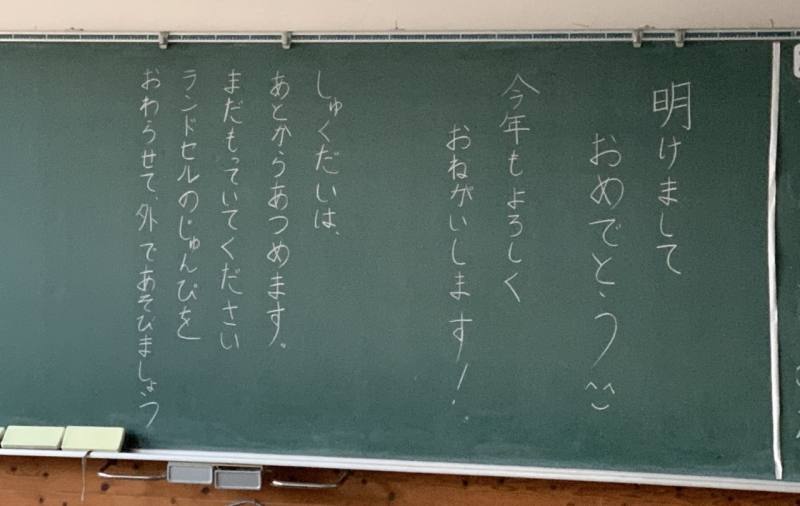 明けまして
おめでとう
今年もよろしく
おねがいします!
しゅくだいは、
あとからあつめます。
まだもっていてください
ランドセルのじゅんびを
おわらせて、外であそびましょう